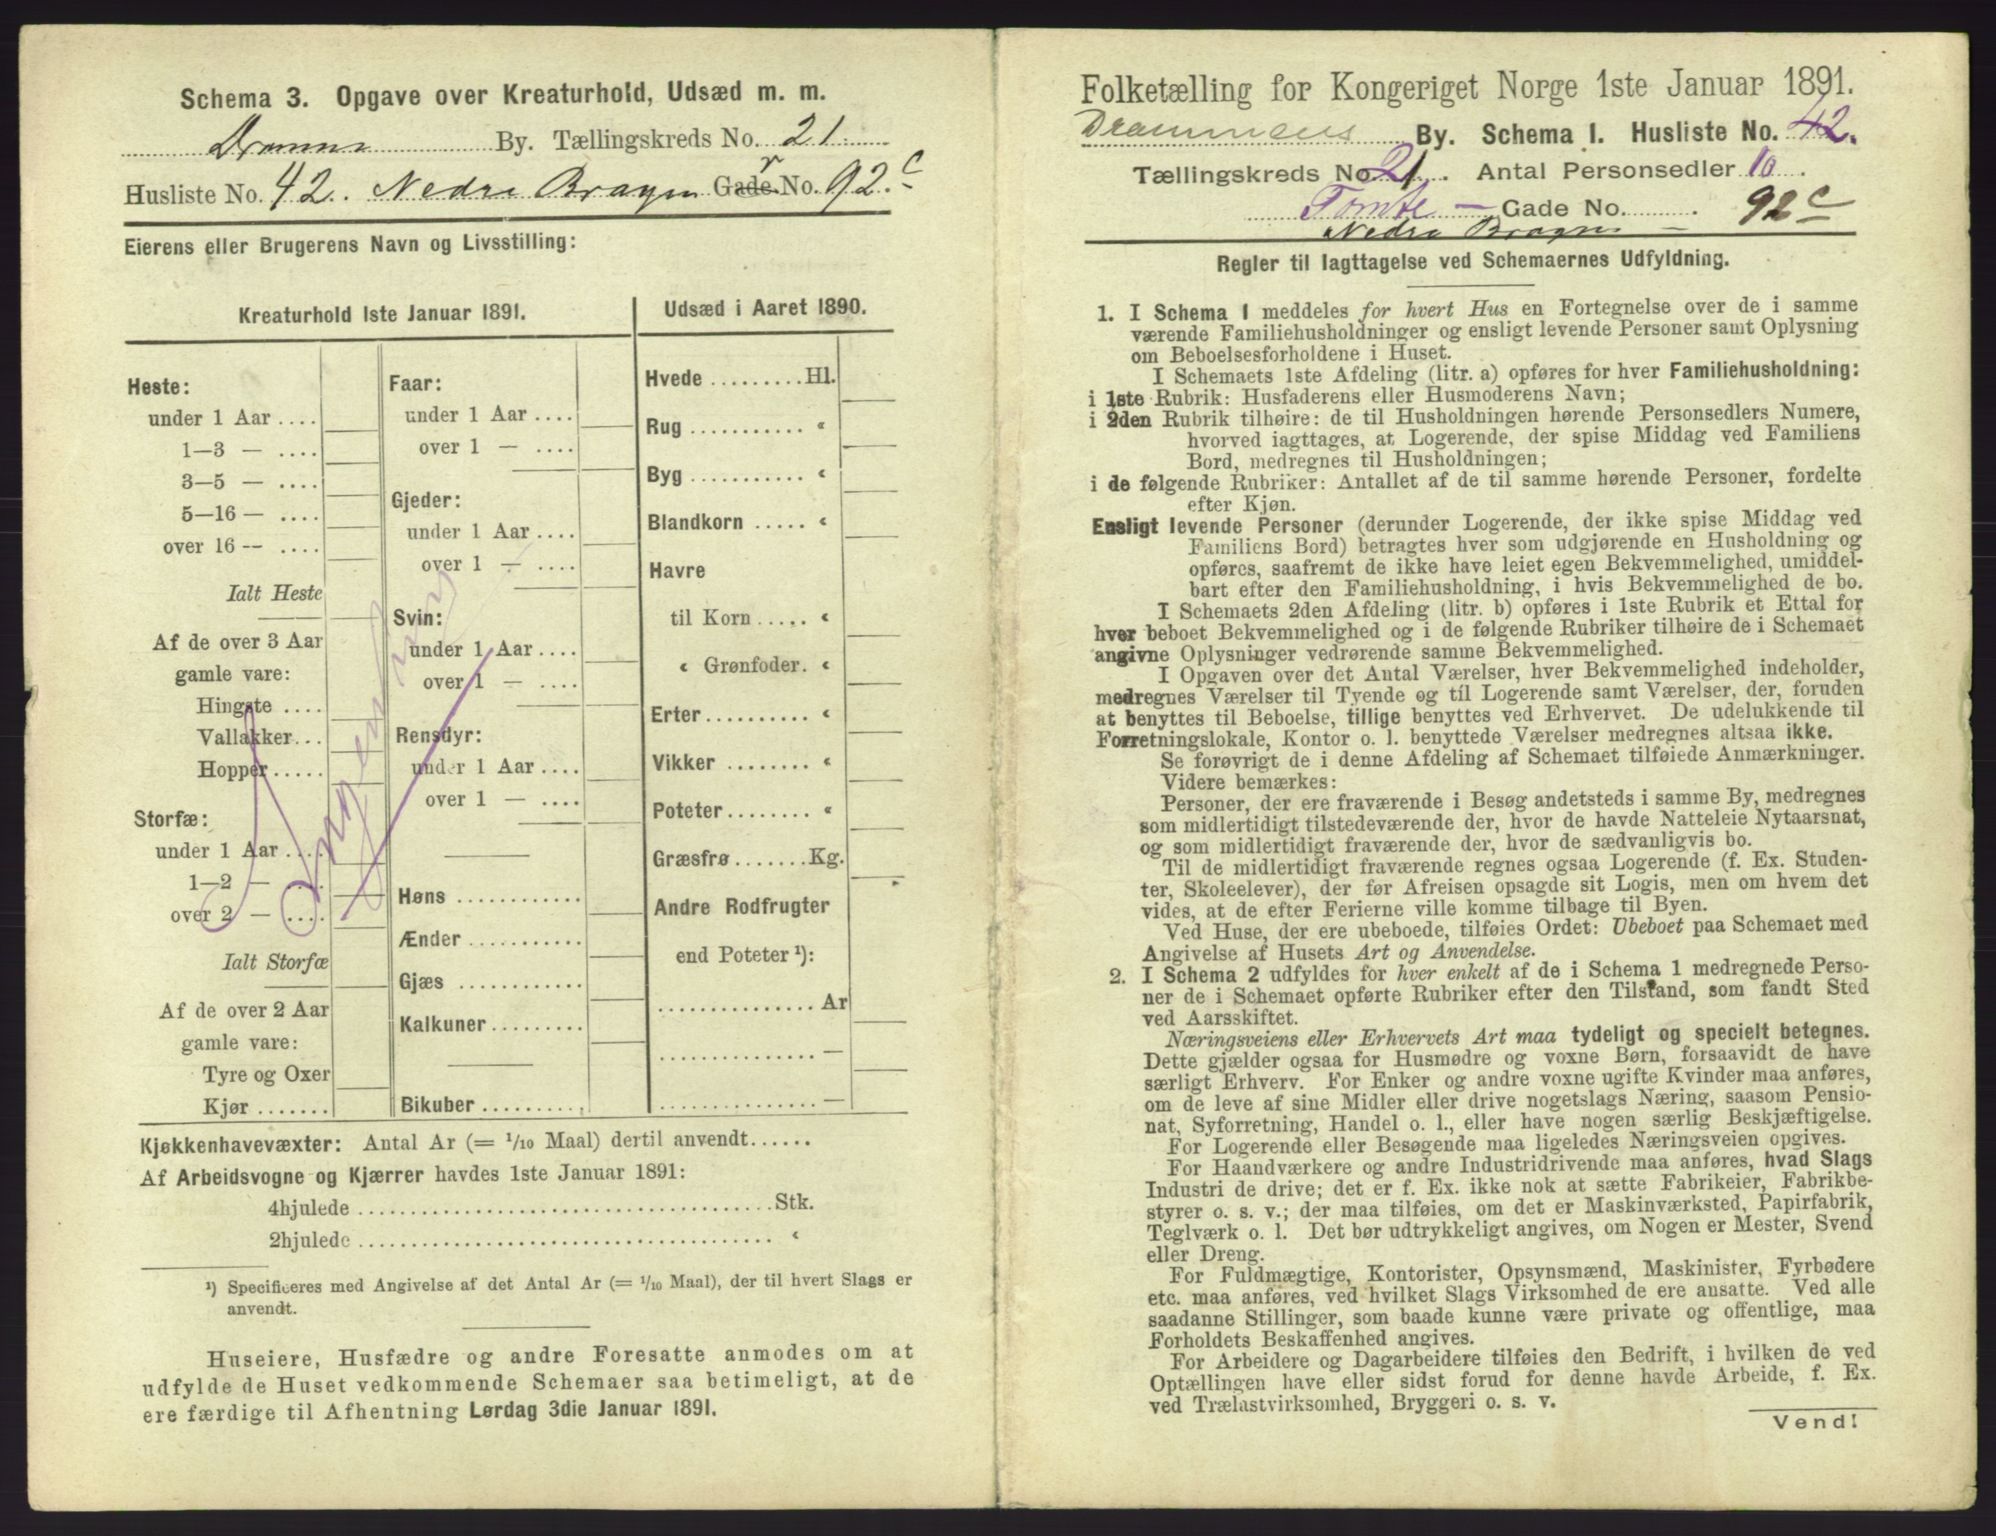 Schema 3. Opgave over Kreaturhold, Udsæd m. m.
By. Tællingskreds No. 21.
Husliste No. 42. Nedre Bragen Gade No. 92.c
Eierens eller Brugerens Navn og Livsstilling:
Kreaturhold 1ste Januar 1891.
Heste:
under 1 Aar ....
1—3 — ....
3—5 — ....
5—16 — ....
over 16 -- ....
Ialt Heste
Af de over 3 Aar
gamle vare:
Hingste ....
Vallakker...
Hopper.....
Storfæ:
under 1 Aar ....
1—2 — ....
over 2 — ....
Ialt Storfæ
Af de over 2 Aar
gamle vare:
Tyre og Oxer
Kjør .......
Faar:
under 1 Aar ....
over 1 — ....
Gjeder:
under 1 Aar ....
over 1 — ....
Svin:
under 1 Aar ....
over 1 — ....
Rensdyr:
under 1 Aar ....
over 1 — ....
Høns ............
Ænder ...........
Gjæs ............
Kalkuner.........
Bikuber ..........
Ingenting
Udsæd i Aaret 1890.
Hvede .........Hl.
Rug ........... «
Byg ........... «
Blandkorn ..... «
Havre
til Korn ..... «
« Grønfoder. «
Erter.......... «
Vikker ........ «
Poteter........ «
Græsfrø.......Kg.
Andre Rodfrugter
end Poteter ¹):
................ Ar
................ —
................ —
Kjøkkenhavevæxter: Antal Ar (= 1/10 Maal) dertil anvendt......
Af Arbeidsvogne og Kjærrer havdes 1ste Januar 1891:
4hjulede ........................................Stk.
2hjulede ........................................ «
¹) Specificeres med Angivelse af det Antal Ar (= 1/10 Maal), der til hvert Slags er
anvendt.
Huseiere, Husfædre og andre Foresatte anmodes om at
udfylde de Huset vedkommende Schemaer saa betimeligt, at de
ere færdige til Afhentning Lørdag 3die Januar 1891.
Folketælling for Kongeriget Norge 1ste Januar 1891.
Drammens By. Schema 1. Husliste No. 42.
Tællingskreds No. 21. Antal Personsedler 10.
Tomte — Gade No. . 92c
Nedre Bragen —
Regler til Iagttagelse ved Schemaernes Udfyldning.
1. I Schema 1 meddeles for hvert Hus en Fortegnelse over de i samme
værende Familiehusholdninger og ensligt levende Personer samt Oplysning
om Beboelsesforholdene i Huset.
I Schemaets 1ste Afdeling (litr. a) opføres for hver Familiehusholdning:
i 1ste Rubrik: Husfaderens eller Husmoderens Navn;
i 2den Rubrik tilhøire: de til Husholdningen hørende Personsedlers Numere,
hvorved iagttages, at Logerende, der spise Middag ved Familiens
Bord, medregnes til Husholdningen;
i de følgende Rubriker: Antallet af de til samme hørende Personer, fordelte
efter Kjøn.
Ensligt levende Personer (derunder Logerende, der ikke spise Middag ved
Familiens Bord) betragtes hver som udgjørende en Husholdning og
opføres, saafremt de ikke have leiet egen Bekvemmelighed, umiddel-
bart efter den Familiehusholdning, i hvis Bekvemmelighed de bo.
I Schemaets 2den Afdeling (litr. b) opføres i 1ste Rubrik et Ettal for
hver beboet Bekvemmelighed og i de følgende Rubriker tilhøire de i Schemaet
angivne Oplysninger vedrørende samme Bekvemmelighed.
I Opgaven over det Antal Værelser, hver Bekvemmelighed indeholder,
medregnes Værelser til Tyende og til Logerende samt Værelser, der, foruden
at benyttes til Beboelse, tillige benyttes ved Erhvervet. De udelukkende til
Forretningslokale, Kontor o. l. benyttede Værelser medregnes altsaa ikke.
Se forøvrigt de i denne Afdeling af Schemaet tilføiede Anmærkninger.
Videre bemærkes:
Personer, der ere fraværende i Besøg andetsteds i samme By, medregnes
som midlertidigt tilstedeværende der, hvor de havde Natteleie Nytaarsnat,
og som midlertidigt fraværende der, hvor de sædvanligvis bo.
Til de midlertidigt fraværende regnes ogsaa Logerende (f. Ex. Studen-
ter, Skoleelever), der før Afreisen opsagde sit Logis, men om hvem det
vides, at de efter Ferierne ville komme tilbage til Byen.
Ved Huse, der ere ubeboede, tilføies Ordet: Ubeboet paa Schemaet med
Angivelse af Husets Art og Anvendelse.
2. I Schema 2 udfyldes for hver enkelt af de i Schema 1 medregnede Perso-
ner de i Schemaet opførte Rubriker efter den Tilstand, som fandt Sted
ved Aarsskiftet.
Næringsveiens eller Erhvervets Art maa tydeligt og specielt betegnes.
Dette gjælder ogsaa for Husmødre og voxne Børn, forsaavidt de have
særligt Erhverv. For Enker og andre voxne ugifte Kvinder maa anføres,
om de leve af sine Midler eller drive nogetslags Næring, saasom Pensio-
nat, Syforretning, Handel o. l., eller have nogen særlig Beskjæftigelse.
For Logerende eller Besøgende maa ligeledes Næringsveien opgives.
For Haandværkere og andre Industridrivende maa anføres, hvad Slags
Industri de drive; det er f. Ex. ikke nok at sætte Fabrikeier, Fabrikbe-
styrer o. s. v.; der maa tilføies, om det er Maskinværksted, Papirfabrik,
Teglværk o. l. Det bør udtrykkeligt angives, om Nogen er Mester, Svend
eller Dreng.
For Fuldmægtige, Kontorister, Opsynsmænd, Maskinister, Fyrbødere
etc. maa anføres, ved hvilket Slags Virksomhed de ere ansatte. Ved alle
saadanne Stillinger, som baade kunne være private og offentlige, maa
Forholdets Beskaffenhed angives.
For Arbeidere og Dagarbeidere tilføies den Bedrift, i hvilken de ved
Optællingen have eller sidst forud for denne havde Arbeide, f. Ex.
ved Trælastvirksomhed, Bryggeri o. s. v.
Vend!